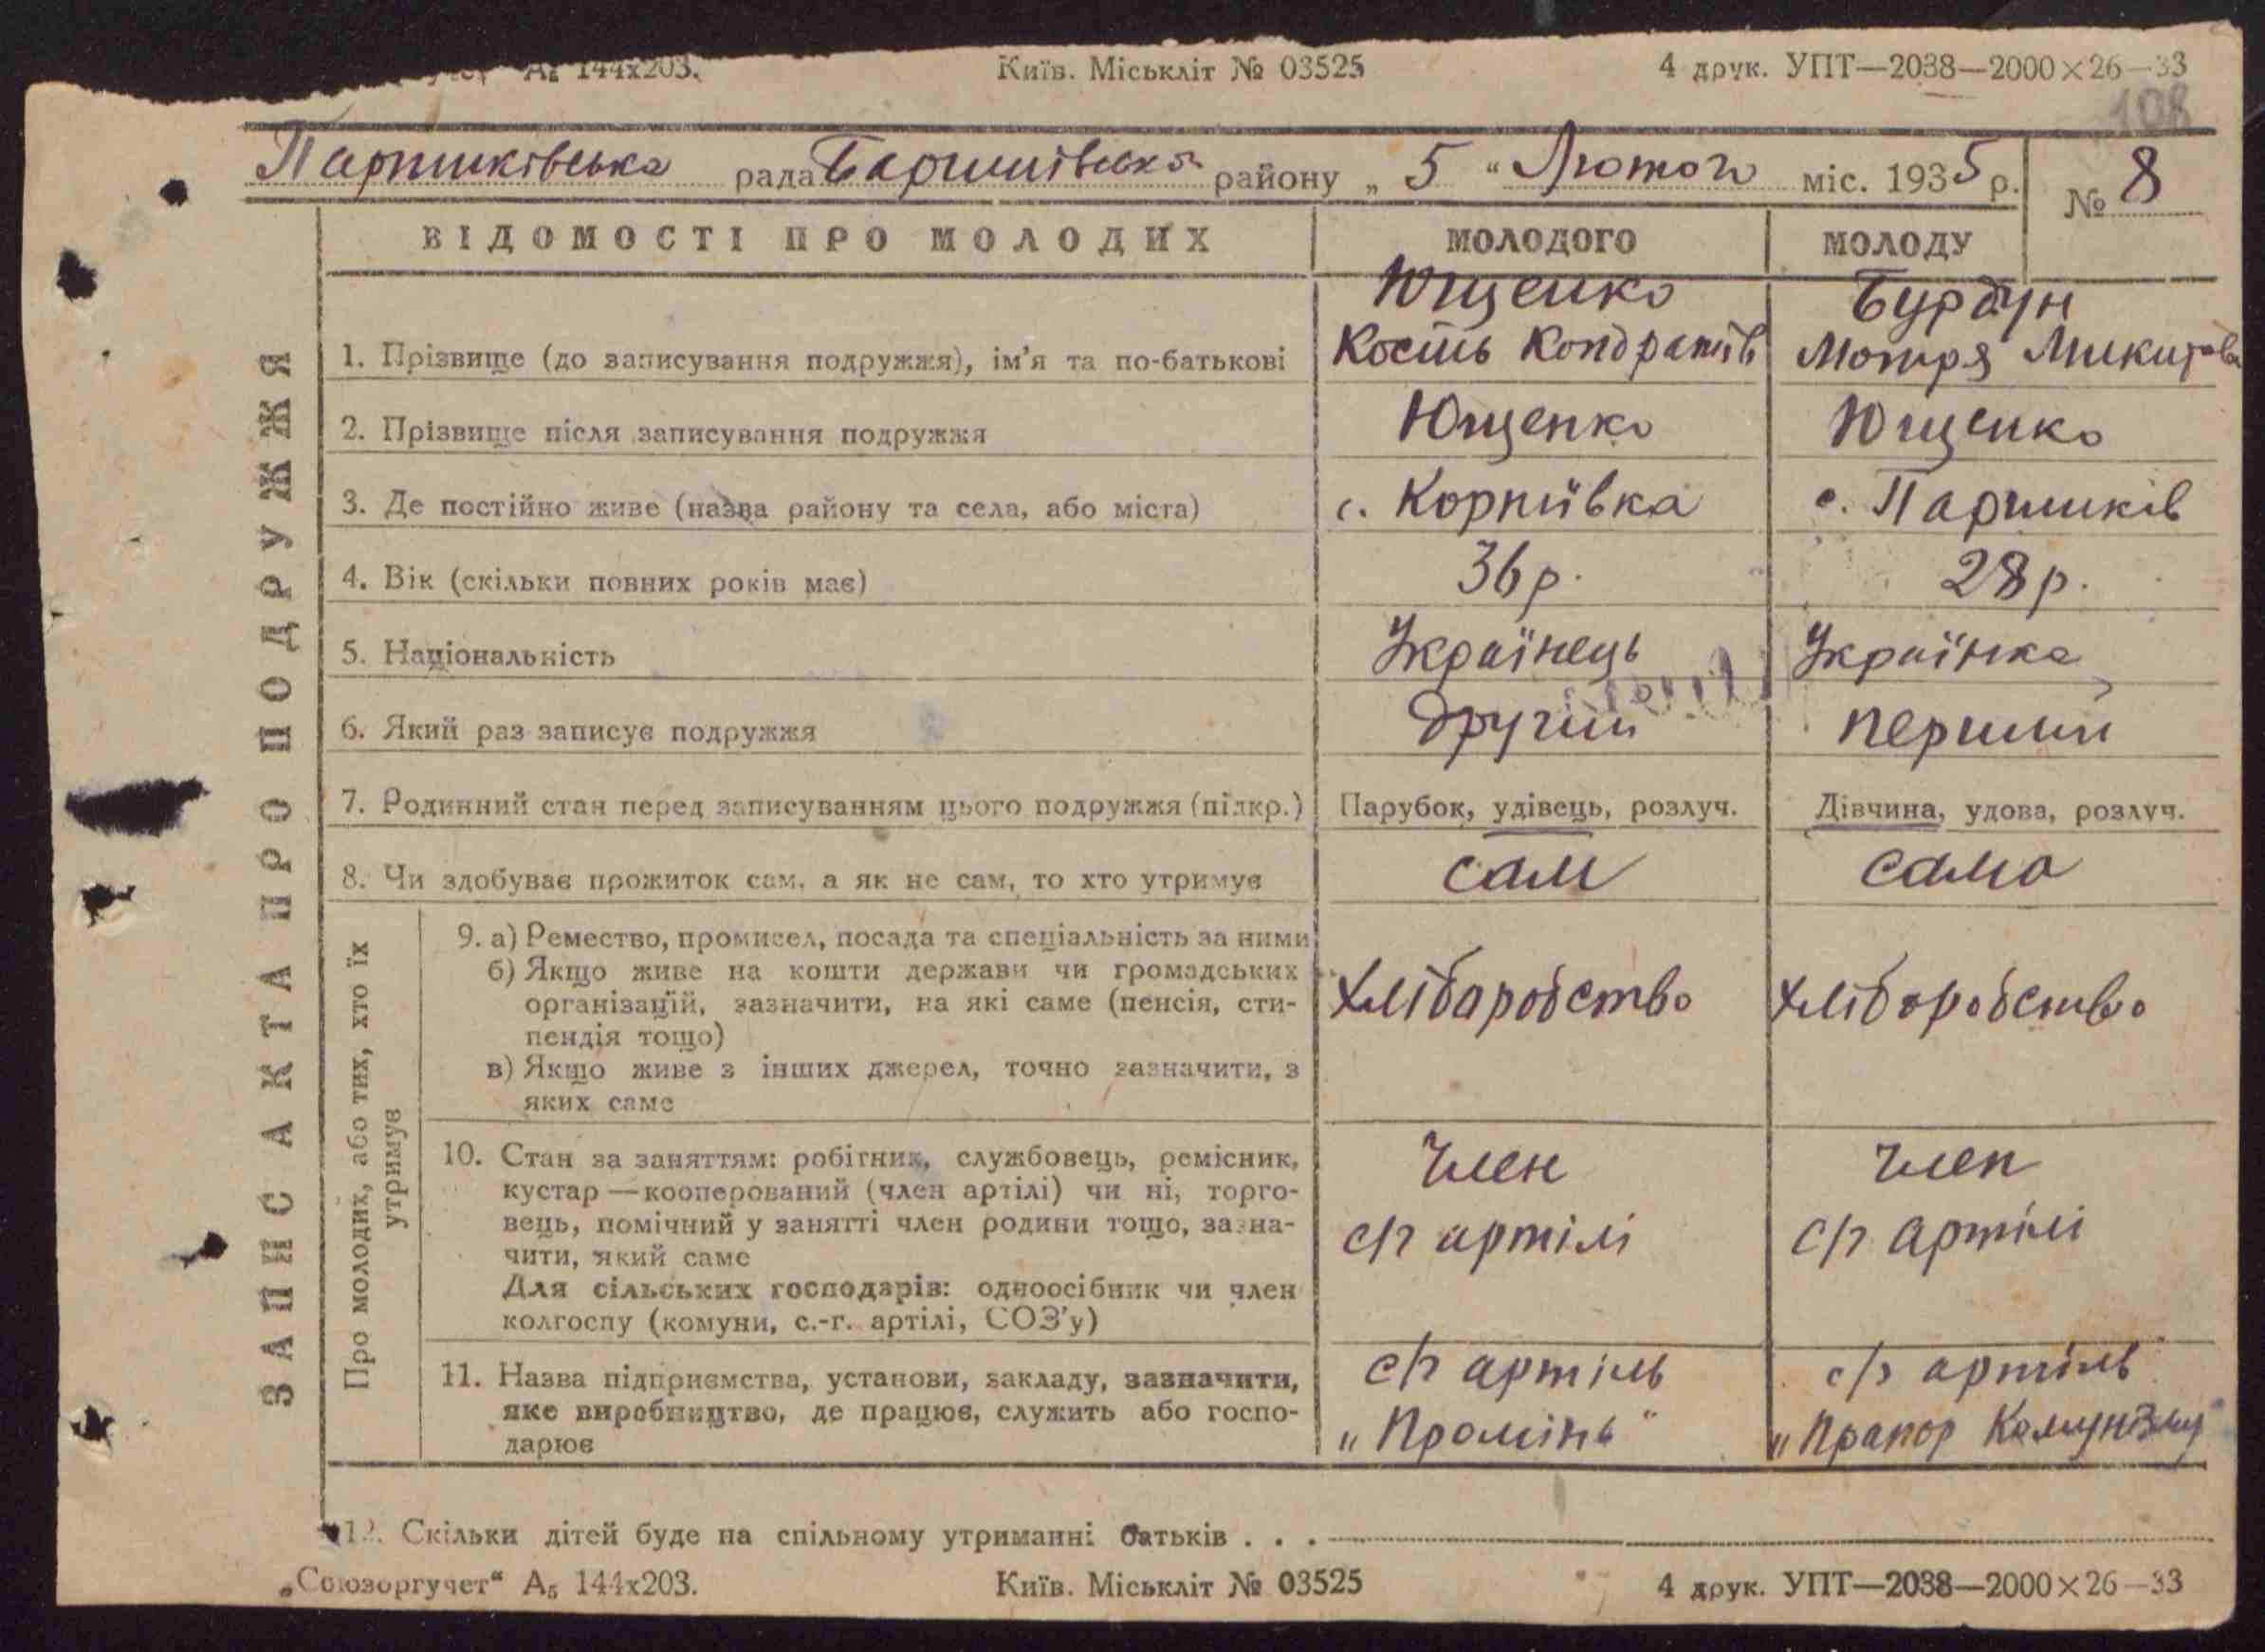 А₅ 144х203. Київ. Міськліт № 03525 4 друк. УПТ—2038—2000×26—33
108
Паришківська рада Баришівська району „ 5 “ Лютого міс. 1935 р. № 8
ВІДОМОСТІ ПРО МОЛОДИХ МОЛОДОГО МОЛОДУ
ЗАПИС АКТА ПРО ПОДРУЖЖЯ
Ющенко Бурдун
1. Прізвище (до записування подружжя), ім’я та по-батькові Кость Кондратів Мотря Микитова
2. Прізвище після записування подружжя Ющенко Ющенко
3. Де постійно живе (назва району та села, або міста) с. Корніївка с. Паришків
4. Вік (скільки повних років має) 36 р. 28 р.
5. Національність Українець Українка
6. Який раз записує подружжя другий перший
7. Родинний стан перед записуванням цього подружжя (підкр.) Парубок, удівець, розлуч. Дівчина, удова, розлуч.
8. Чи здобуває прожиток сам, а як не сам, то хто утримує сам сама
Про молодих, або тих, хто їх
утримує
9. а) Ремество, промисел, посада та спеціальність за ними
б) Якщо живе на кошти держави чи громадських
організацій, зазначити, на які саме (пенсія, сти- хлібаробство хліборобство
пендія тощо)
в) Якщо живе з інших джерел, точно зазначити, з
яких саме
10. Стан за заняттям: робітник, службовець, ремісник, Член Член
кустар—кооперований (член артілі) чи ні, торго-
вець, помічний у занятті член родини тощо, зазна- с/г артілі с/г артілі
чити, який саме
Для сільських господарів: одноосібник чи член
колгоспу (комуни, с.-г. артілі, СОЗ’у)
11. Назва підприємства, установи, закладу, зазначити, с/г артіль с/г артіль
яке виробництво, де працює, служить або госпо- „Промінь“ „Прапор Комунізму“
дарює
12. Скільки дітей буде на спільному утриманні батьків . . .
„Союзоргучет“ А₅ 144х203. Київ. Міськліт № 03525 4 друк. УПТ—2038—2000×26—33